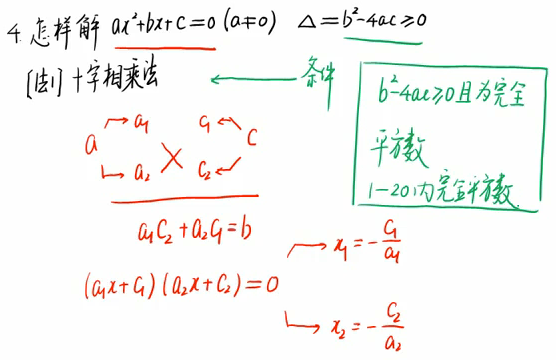 4. 怎样解 ax²+bx+c=0 (a≠0) △=b²-4ac≥0
[法1] 十字相乘法 ← 条件
b²-4ac≥0且为完全
平方数
1-20内完全平方数.
a → a₁ c₁ ← c
→ a₂ c₂ ←
a₁c₂+a₂c₁=b
(a₁x+c₁)(a₂x+c₂)=0
→ x₁=-c₁/a₁
→ x₂=-c₂/a₂